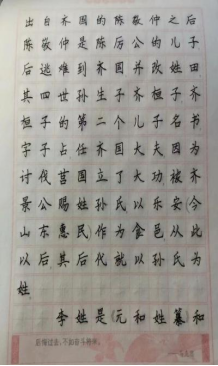 出自齐国的陈敬仲之后
陈敬仲是陈厉公的儿子
后逃难到齐国并改姓田
其四世孙生子齐桓子齐
桓子的第二个儿子名书
字子占任齐国大夫因为
讨伐莒国立了大功被齐
景公赐姓孙氏以乐安(今
山东惠民)作为食邑从此
以后其后代就以孙氏为
姓
李姓是《元和姓纂》和